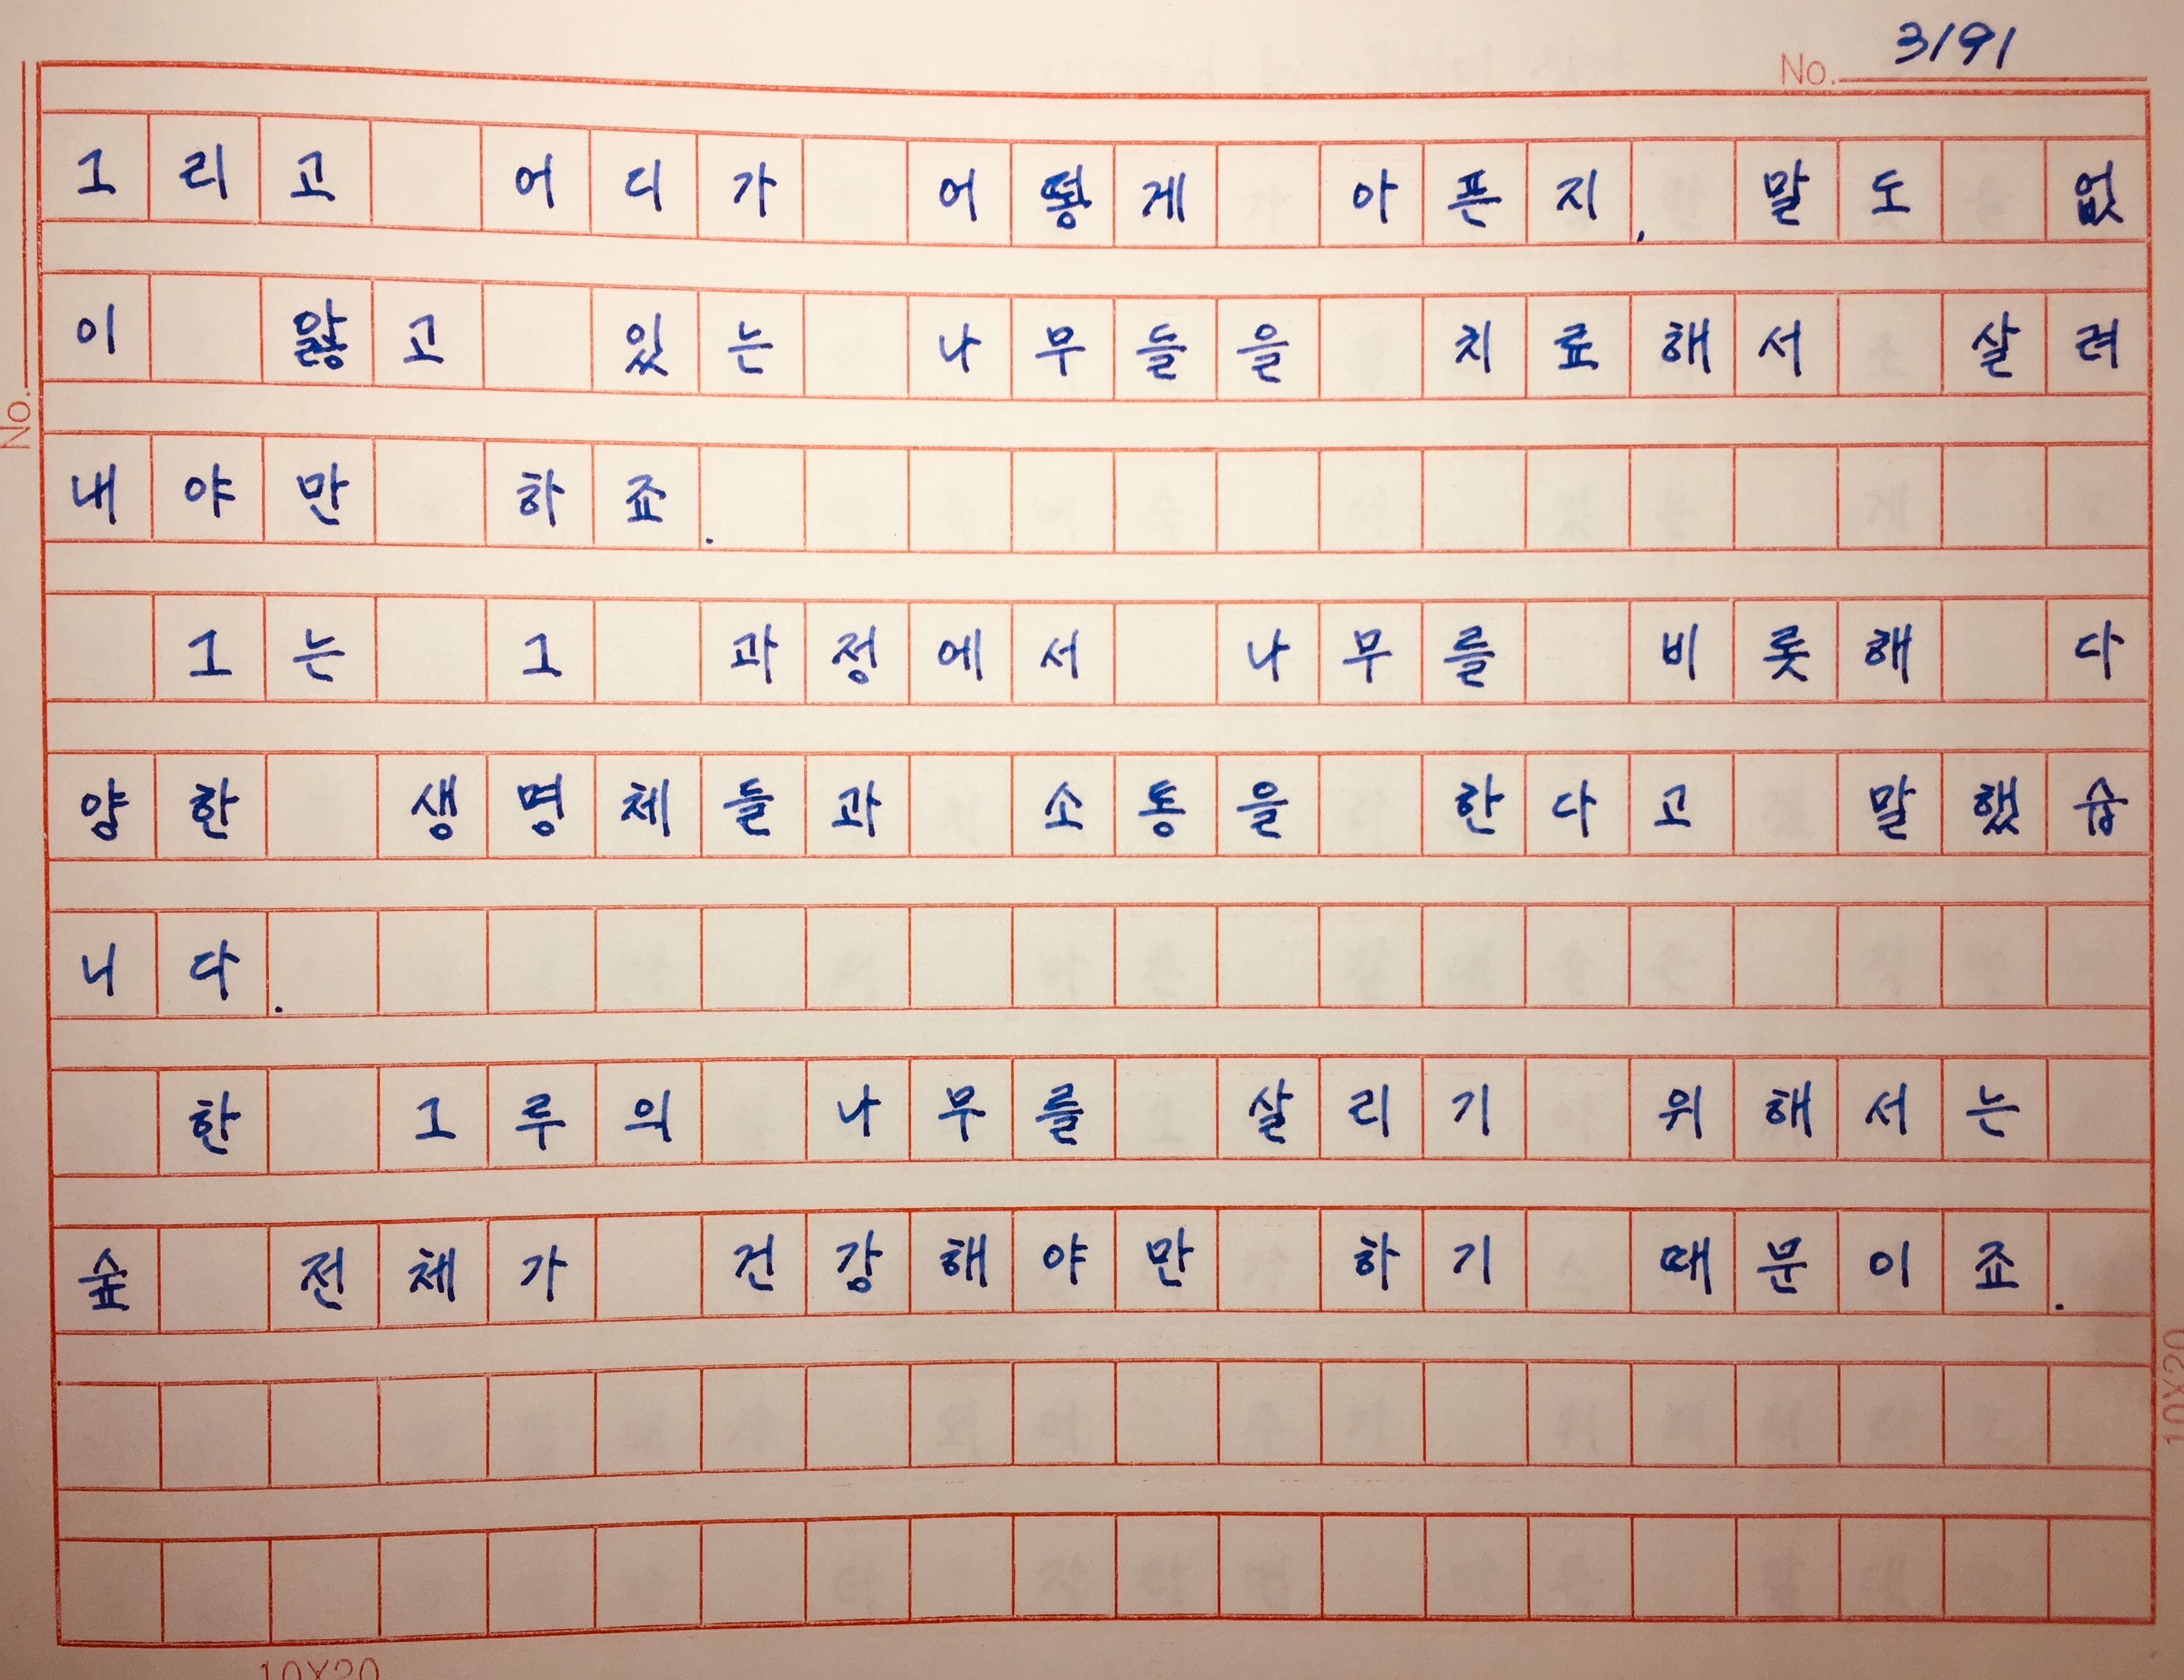 No. 3191
그리고 어디가 어떻게 아픈지, 말도 없
이 앓고 있는 나무들을 치료해서 살려
내야만 하죠.
그는 그 과정에서 나무를 비롯해 다
양한 생명체들과 소통을 한다고 말했습
니다.
한 그루의 나무를 살리기 위해서는
숲 전체가 건강해야만 하기 때문이죠.
No.
10X20
10X20